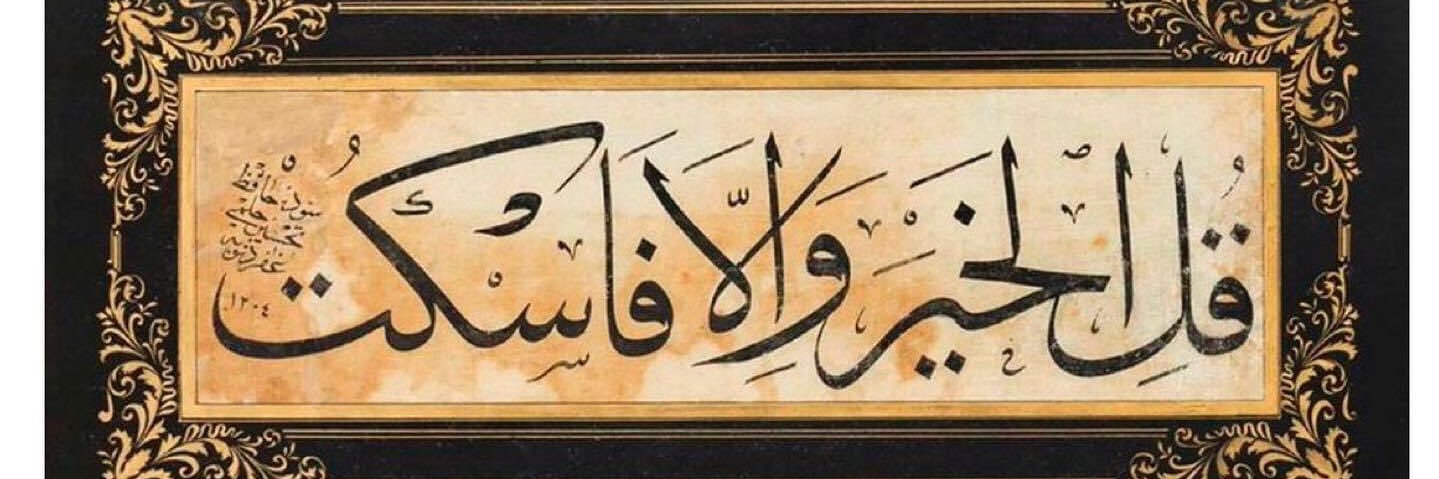 قُلِ الْخَيْرَ وَاِلَّا فَاسْكُتْ
سوده حافظ
تحسين حلمي
غفر ذنوبه
١٢٠٤